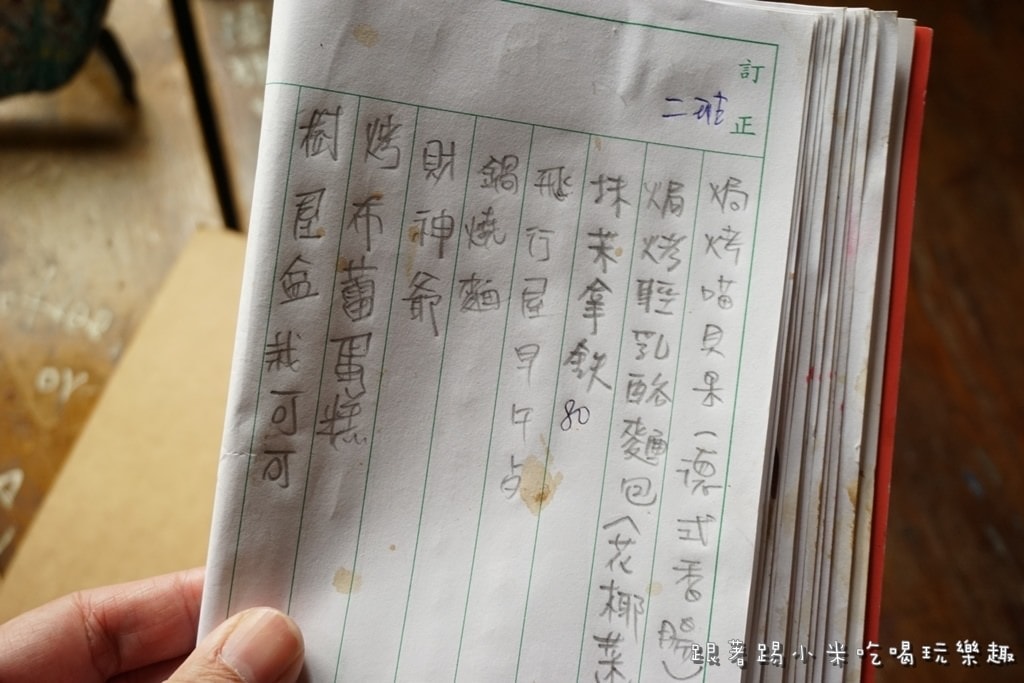 訂正
二班
焗烤喵貝果(德式香腸)
焗烤輕乳酪麵包(花椰菜
抹茶拿鉄80
飛行屋早午点
鍋燒麵
財神爺
烤布蕾蛋糕
樹屋盆栽可可
跟著踢小米吃喝玩樂趣